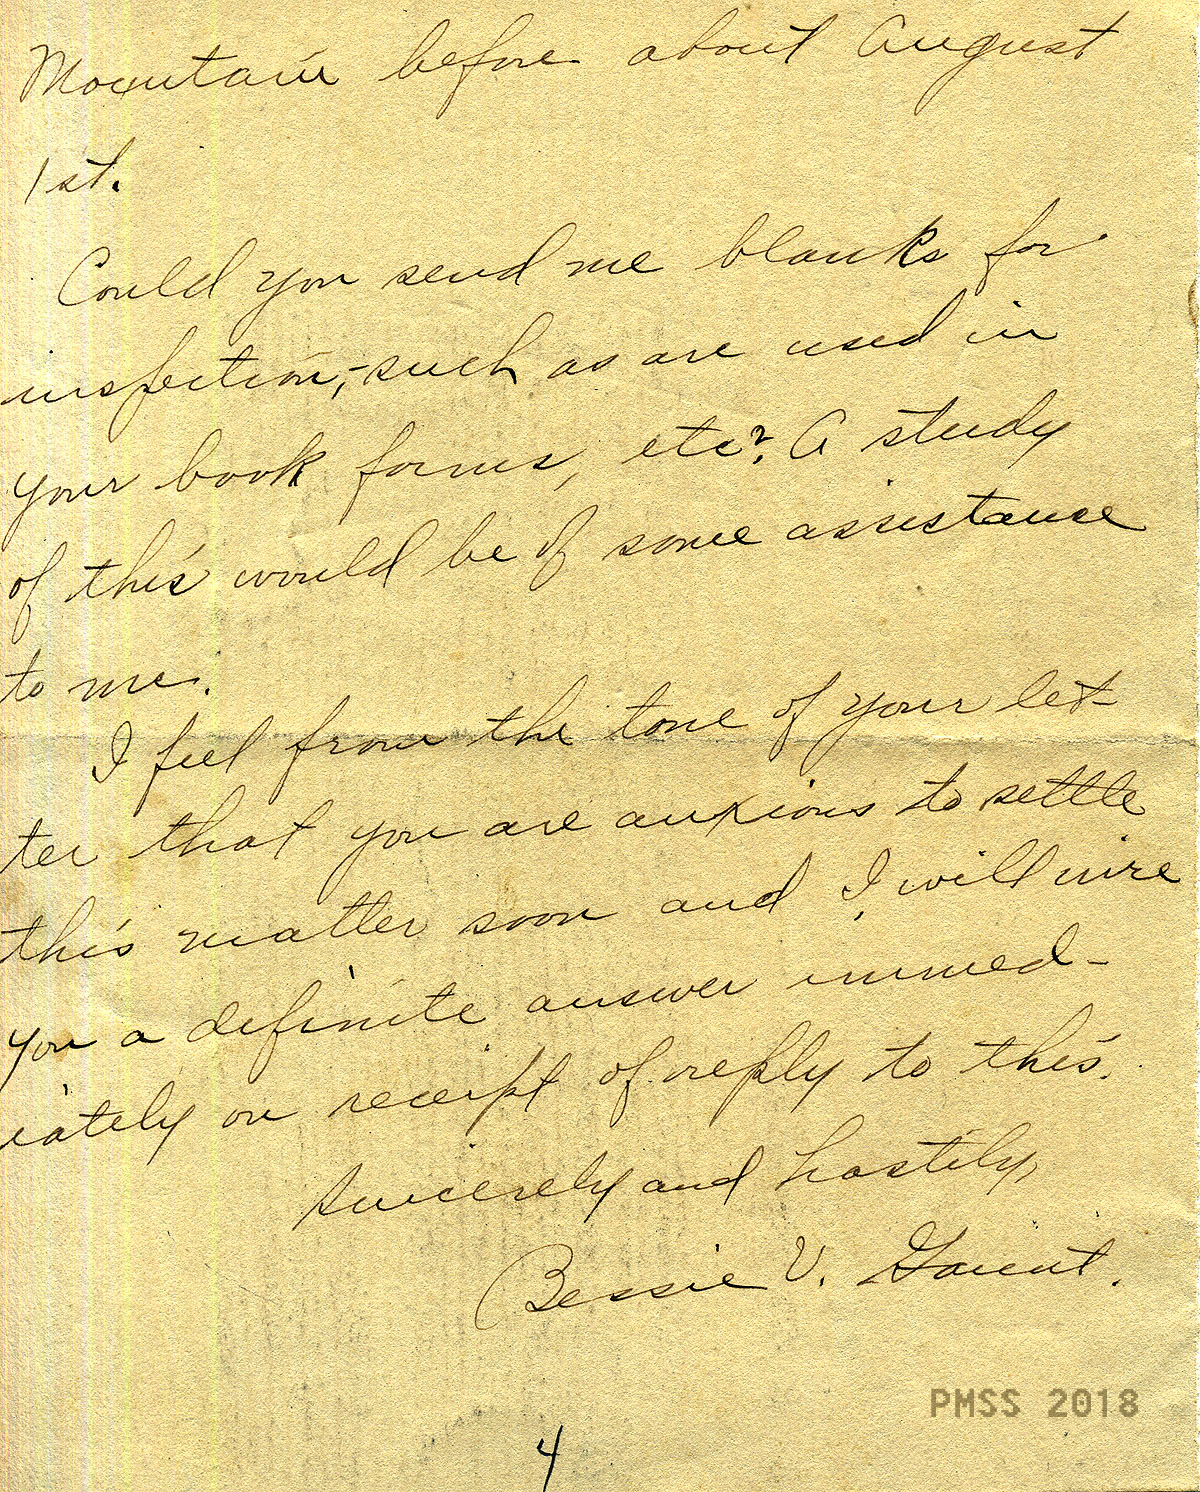 Mountain before about August
1st.
Could you send me blanks for
inspection, - such as are used in
your book forms, etc? A study
of this would be of some assistance
to me.
I feel from the tone of your let-
ter that you are anxious to settle
this matter soon and I will wire
you a definite answer immed-
iately on receipt of reply to this.
Sincerely and hastily,
Bessie V. Gaunt.
PMSS 2018
4